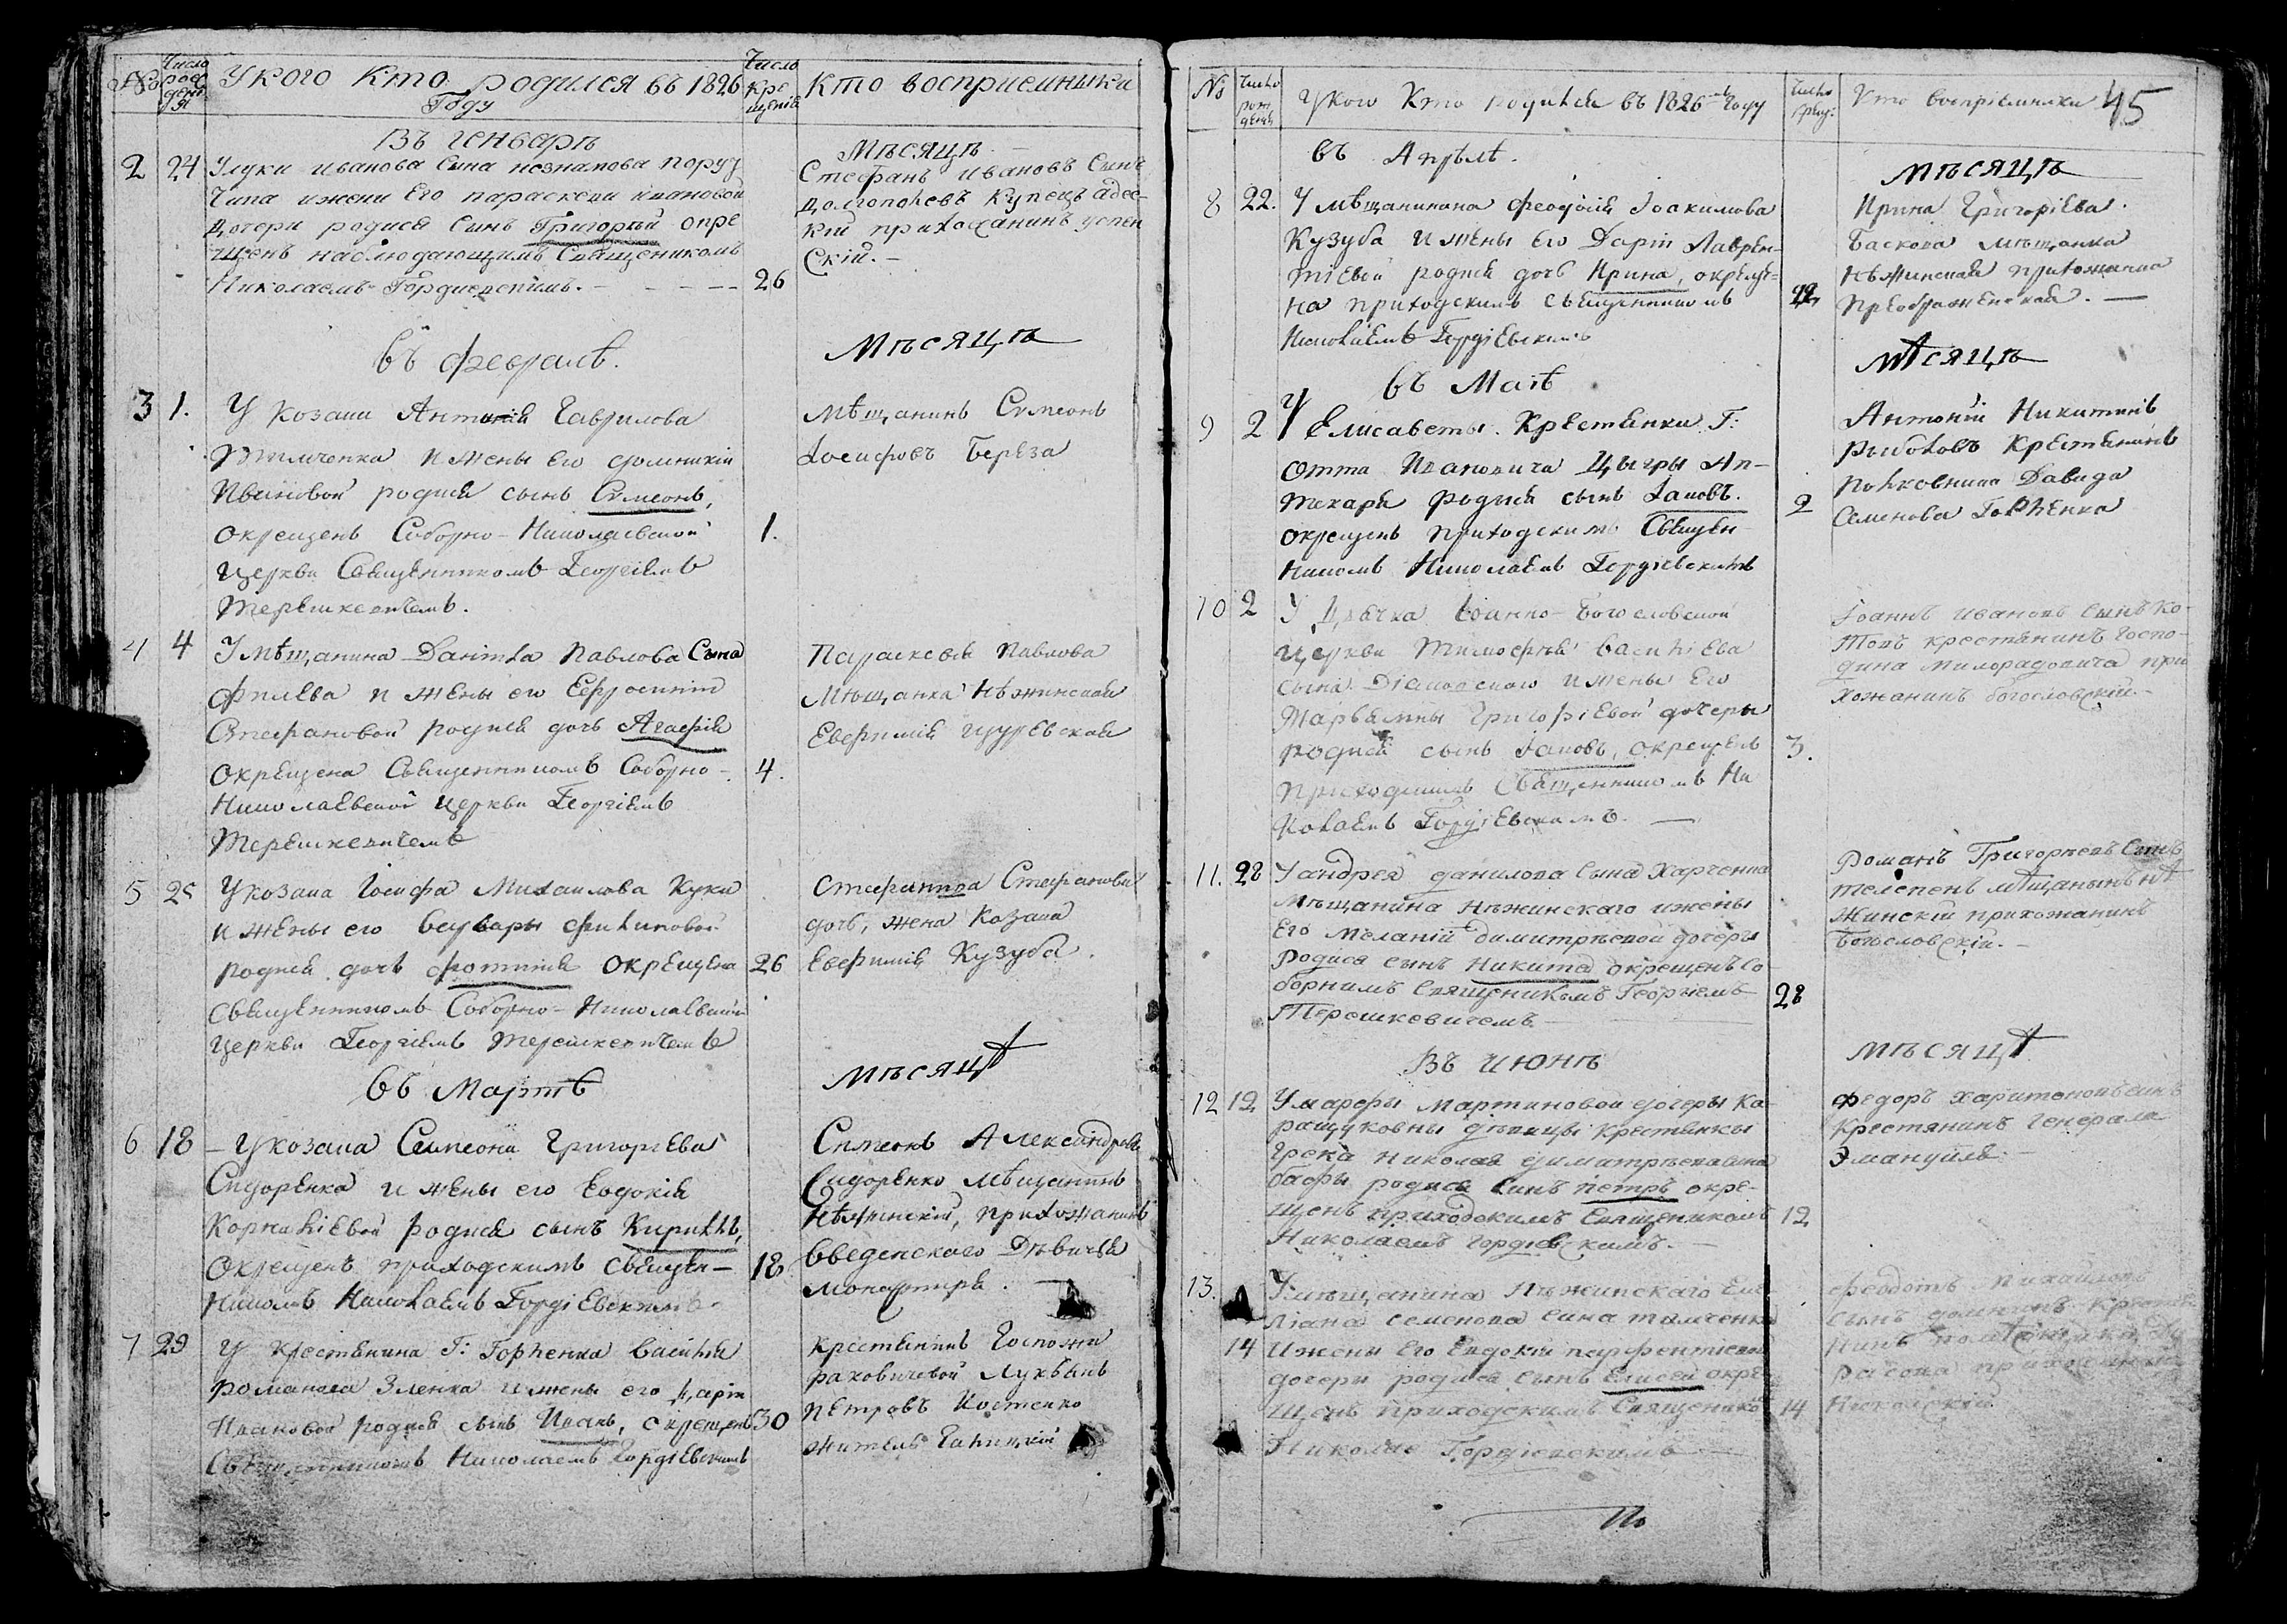 №
Число
рож
дені
я
У кого Кто родился въ 1826
Году
Число
кре
щенія
Кто восприемники
Въ генварѣ
Мѣсяцѣ
2 24 У луки иванова Сына незнакова пору
чика и жени Его параскеви ивановой
дочери родися Сынъ Григорий окре
щенъ наблюдающимъ Священикомъ
Николаемъ Гордиевскимъ. 26
Стефанъ ивановъ Сынъ
долгополовъ купецъ адес-
кій прихожанинъ успен
Скій.
въ февралѣ.
Мѣсяцѣ
3 1. У козака Антонія Гаврилова
жены его домникіи
Ивановой родися сынъ Симеонъ,
окрещенъ Соборно-Николаевской 1.
церкви Священникомъ Георгіемъ
Терешкевичемъ.
Мѣщанинъ Симеонъ
Іосифовъ Береза
4 4 У мѣщанина Данила Павлова Сына
Филева и жены его Ефросиніи
Стефановой родися дочь Агафія
Окрещена Священникомъ Соборно- 4.
Николаевской церкви Георгіемъ
Терешкевичемъ
Параскевія Павлова
Мѣщанка Нѣжинская
Евфимія
5 25 У козака Іосифа Михаилова Куки
и жены его Варвары Филиповой
родися дочь Фотинія Окрещена 26
священникомъ Соборно-Николаевской
церкви Георгіемъ Терешкевичемъ
Стефанида Стефанова
дочь, жена Козака
Евфимія Кузуба.
въ Мартѣ
мѣсяцѣ
6 18 У козака Симеона Григоріева
Сидоренка и жены его Евдокіи
Корниліевой родися сынъ Кириллъ,
Окрещенъ приходскимъ священ- 18
никомъ Николаемъ Гордіевскимъ.
Симеонъ Александровъ
Сидоренко мѣщанинъ
Нѣжинскій, прихожанинъ
Введенскаго Дѣвичья
монастыря.
7 29 У крестянина Г: Горленка Василія
романова Зленка и жены его Даріи
Ивановой родися сынъ Иванъ, окрещенъ 30
Священникомъ Николаемъ Гордіевскимъ
крестянинъ Госпожи
раковичевой Лукьянъ
Петровъ Костенко
житель
№
Число
рож
денія
У кого Кто родился въ 1826мъ году
Число
крещ:
Кто воспріемники
45
въ Апрѣлѣ.
мѣсяцѣ
8 22. У мѣщанина Феодосія Іоакимова
Кузуба и жены его Даріи Лаврен-
тіевой родися дочь Ирина, окреще-
на приходскимъ священникомъ 22
Николаемъ Гордіевскимъ
Ирина Григоріева
Баскова мѣщанка
Нѣжинская прихожанка
Преображенская.
въ Маіѣ
мѣсяцѣ
9 2 У Елисаветы Крестянки Г:
Отта Ивановича Цыгры Ап-
текаря родися сынъ Іаковъ. 2
окрещенъ приходскимъ Священ-
никомъ Николаемъ Гордіевскимъ
Антоній Никитинъ
Рыболовъ Крестянинъ
Полковника Давида
Семенова Горленка
10 2 У Дьячка Іоанно-Богословской
церкви Тимофея Василіева
сына и жены Его
Григоріевой дочеры
родися сынъ Іаковъ, окрещенъ 3.
приходскимъ Священникомъ Ни
колаемъ Гордіевскимъ.
Іоаннъ ивановъ сынъ Ко-
товъ крестянинъ Госпо-
дина милорадовича при
хожанинъ богословскій.
11. 28 У андрея данилова Сына Харченка
Мѣщанина Нѣжинскаго и жены
Его Меланіи димитрѣевой дочеры
Родися сынъ Никита окрещенъ Со
борнимъ Священикомъ Георгиемъ 28
Терешкевичемъ
Романъ Григорѣевъ Синъ
телепенъ мѣщанынъ нѣ
жинскій прихожанинъ
Богословскій.
Въ июнѣ
мѣсяцѣ
12 12 У марфы мартиновой дочеры Ка
ращуковны дѣвицы крестянки
грека николая димитрѣева сина
бафы родися синъ петръ окре-
щенъ приходскимъ Священикомъ 12
Николаемъ гордіевскимъ.
Федоръ харитоновъ синъ
крестянинъ генерала
Эмануиля.
13. 14 У мѣщанина Нѣжинскаго Еме
ліана семенова сина
И жены Его Евдокіи парфентіевой
дочери родися Сынъ Елисей окре
щенъ приходскимъ Священико 14
Николае Гордіевскимъ
феодотъ михайловъ
сынъ крестя
нинъ помѣщика